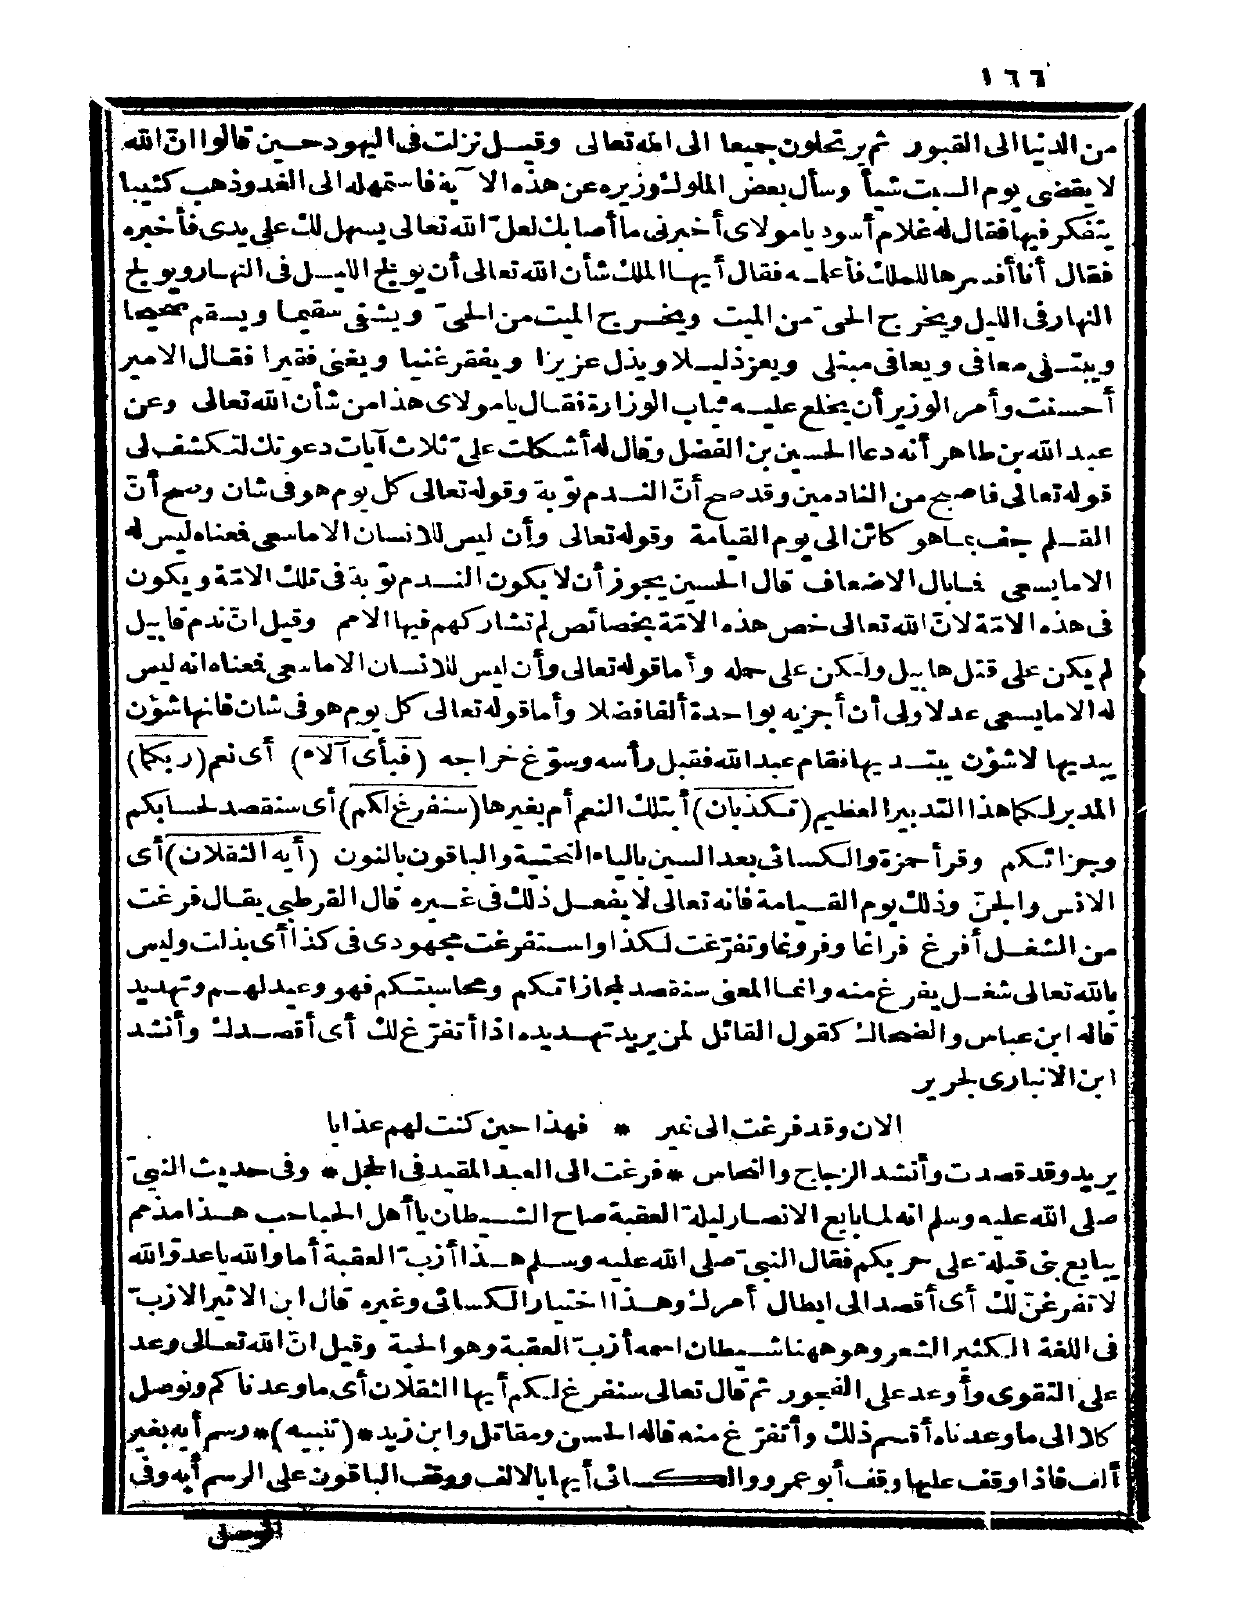 ١٦٦
من الدنيا الى القبور ثم يرتحلون جميعا الى الله تعالى وقيل نزلت فى اليهود حين قالوا انّ الله
لا يقضى يوم السبت شيأ وسأل بعض الملوك وزيره عن هذه الآية فاستمهله الى الغد وذهب كئيبا
يتفكر فيها فقال له غلام أسود يا مولاى أخبرنى ما أصابك لعلّ الله تعالى يسهل لك على يدى فأخبره
فقال أنا أفسرها للملك فأعلمه فقال أيها الملك شأن الله تعالى أن يولج الليل فى النهار ويولج
النهار فى الليل ويخرج الحىّ من الميت ويخرج الميت من الحىّ ويشفى سقيما ويسقم صحيحا
ويبتلى معافى ويعافى مبتلى ويعز ذليلا ويذل عزيزا ويفقر غنيا ويغنى فقيرا فقال الامير
أحسنت وأمر الوزير أن يخلع عليه ثياب الوزارة فقال يا مولاى هذا من شأن الله تعالى وعن
عبد الله بن طاهر أنه دعا الحسين بن الفضل وقال له أشكلت علىّ ثلاث آيات دعوتك لتكشف لى
قوله تعالى فاصبح من النادمين وقد صح أنّ الندم توبة وقوله تعالى كل يوم هو فى شان وصح أنّ
القلم جف بما هو كائن الى يوم القيامة وقوله تعالى وأن ليس للانسان الا ما سعى فمعناه ليس له
الا ما يسعى فما بال الاضعاف قال الحسين يجوز أن لا يكون الندم توبة فى تلك الامّة ويكون
فى هذه الامّة لانّ الله تعالى خص هذه الامّة بخصائص لم تشاركهم فيها الامم وقيل انّ ندم قابيل
لم يكن على قتل هابيل ولكن على حمله وأما قوله تعالى وأن ليس للانسان الا ما سعى فمعناه انه ليس
له الا ما يسعى عدلا ولى أن أجزيه بواحدة ألفا فضلا وأما قوله تعالى كل يوم هو فى شان فانها شؤن
يبديها لا شؤن يبتديها فقام عبد الله فقبل رأسه وسوّغ خراجه (فبأى آلاء) أى نعم (ربكما)
المدبر لكما هذا التدبير العظيم (تكذبان) أبتلك النعم أم بغيرها (سنفرغ لكم) أى سنقصد لحسابكم
وجزائكم وقرأ حمزة والكسائى بعد السين بالياء التحتية والباقون بالنون (أيه الثقلان) أى
الانس والجنّ وذلك يوم القيامة فانه تعالى لا يفعل ذلك فى غيره قال القرطبى يقال فرغت
من الشغل أفرغ فراغا وفروغا وتفرّغت لكذا واستفرغت مجهودى فى كذا أى بذلت وليس
بالله تعالى شغل يفرغ منه وانما المعنى سنقصد لمجازاتكم ومحاسبتكم فهو وعيد لهم وتهديد
قاله ابن عباس والضحاك كقول القائل لمن يريد تهديده اذا أتفرّغ لك أى أقصدك وأنشد
ابن الانبارى لجرير
الان وقد فرغت الى نمير * فهذا حين كنت لهم عذابا
يريد وقد قصدت وأنشد الزجاج والنحاس * فرغت الى العبد المقيد فى الحجل * وفى حديث النبىّ
صلى الله عليه وسلم انه لما بايع الانصار ليلة العقبة صاح الشيطان يا أهل الجباجب هذا مذمم
يبايع بنى قيلة على حربكم فقال النبىّ صلى الله عليه وسلم هذا أزبّ العقبة أما والله يا عدوّ الله
لا تفرغنّ لك أى أقصد الى ابطال أمرك وهذا اختيار الكسائى وغيره قال ابن الاثير الازبّ
فى اللغة الكثير الشعر وهو ههنا شيطان اسمه أزبّ العقبة وهو الحية وقيل انّ الله تعالى وعد
على التقوى وأوعد على الفجور ثم قال تعالى سنفرغ لكم أيها الثقلان أى ما وعدناكم ونوصل
كلا الى ما وعدناه أقسم ذلك وأتفرّغ منه قاله الحسن ومقاتل وابن زيد * (تنبيه) * رسم أيه بغير
ألف فاذا وقف عليها وقف أبو عمرو والكسائى أيها بالالف ووقف الباقون على الرسم أيه وفى
الوصل